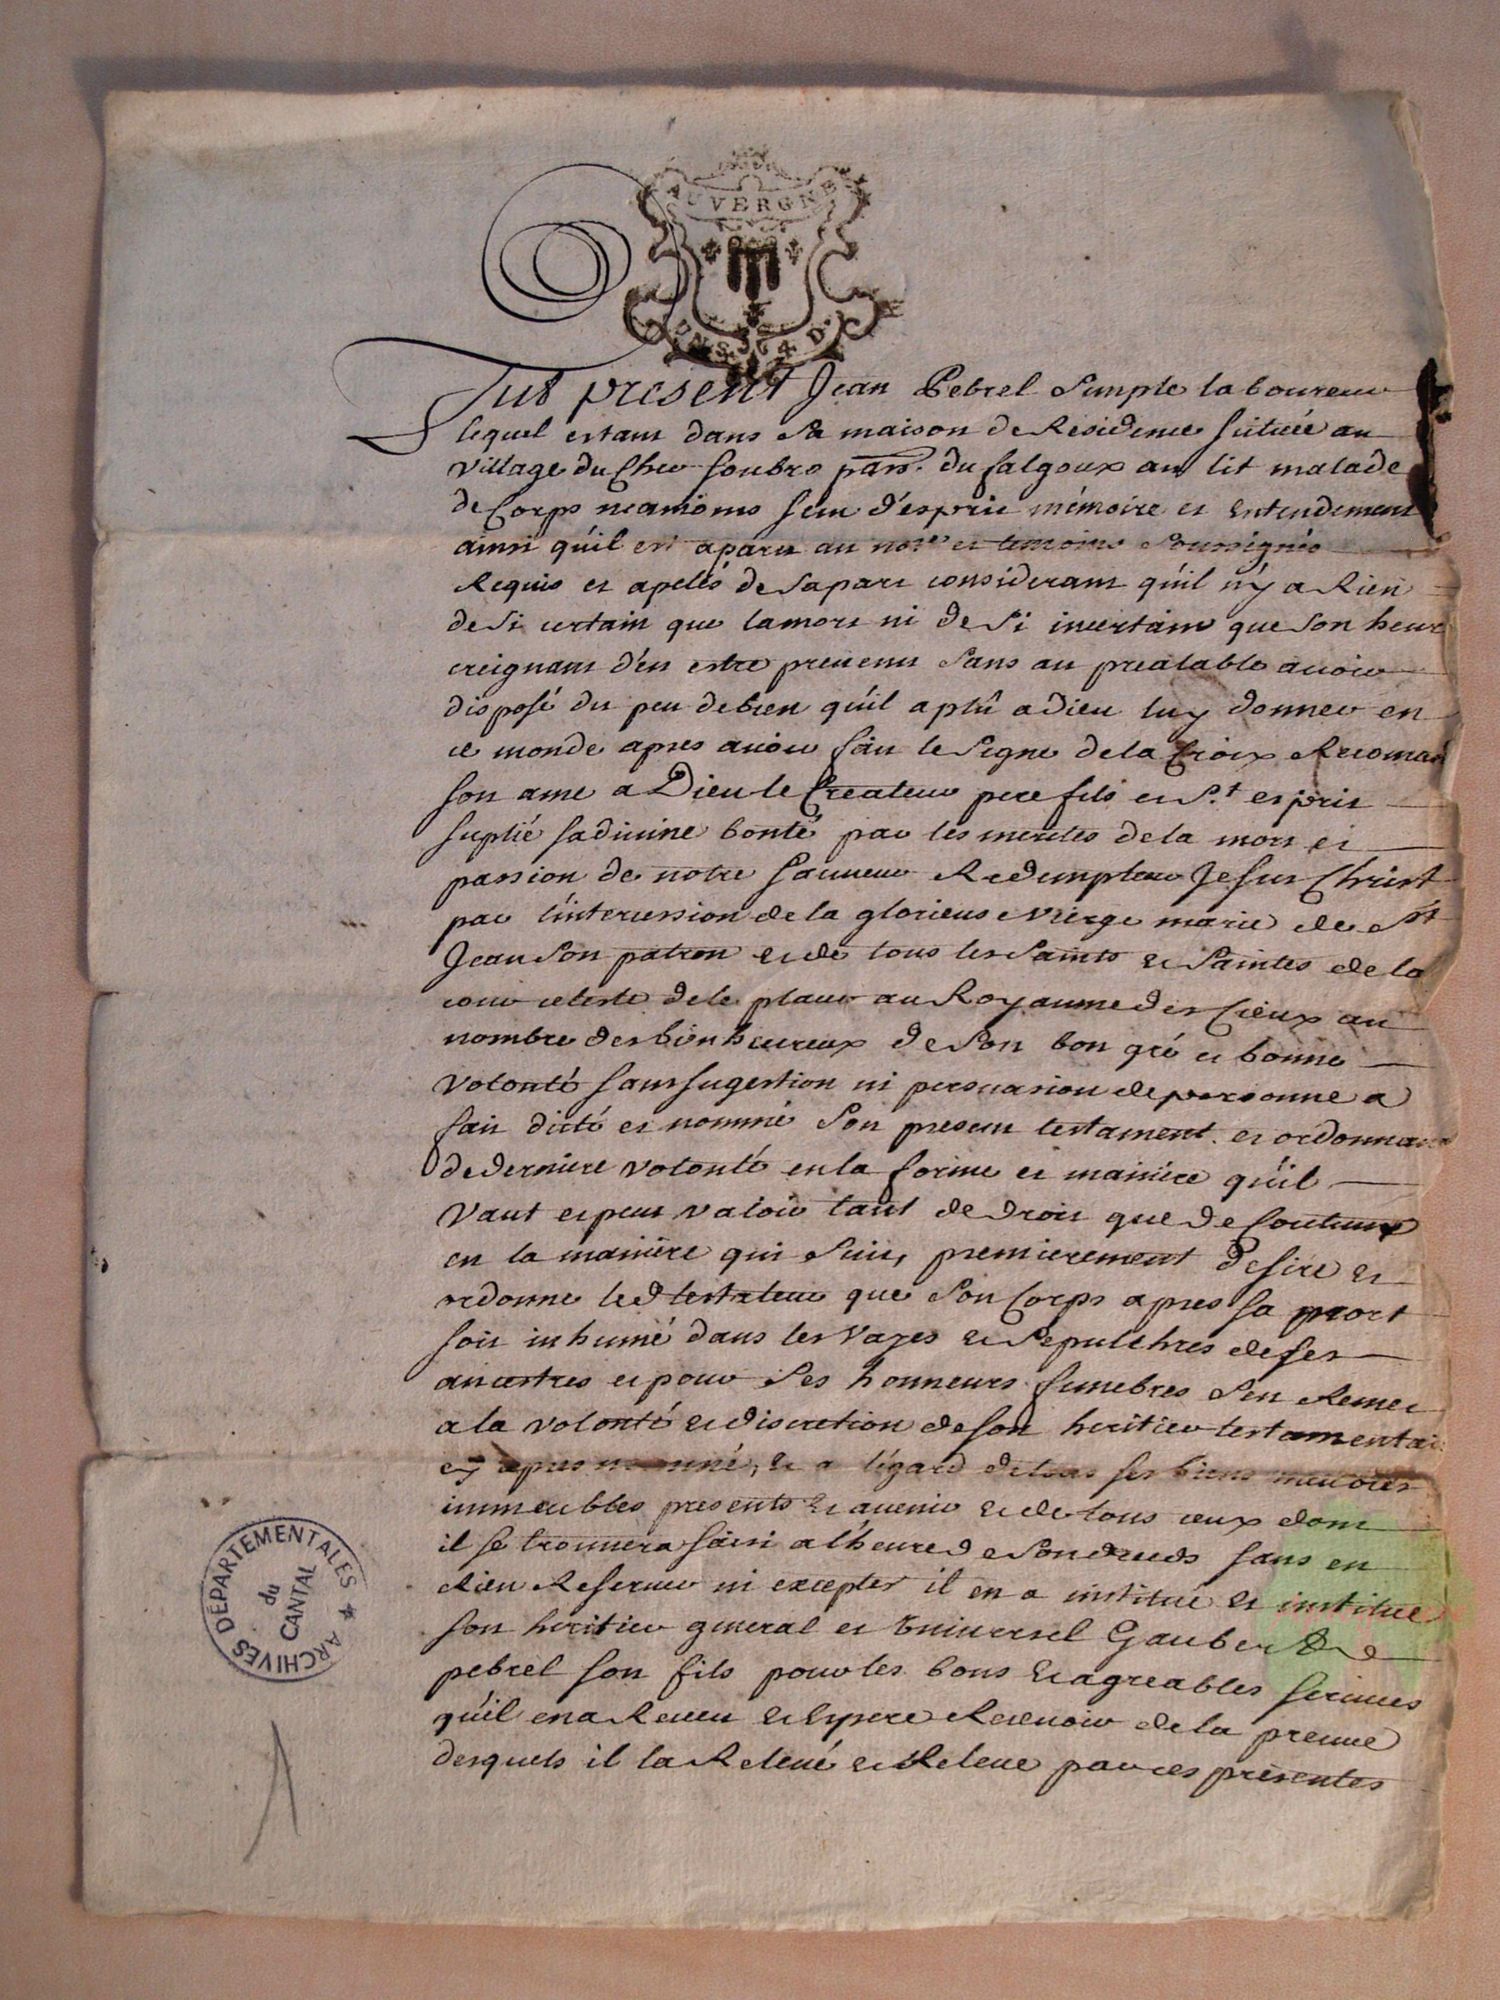 AUVERGNE
Fut present Jean Pebrel simple laboureur
lequel estant dans sa maison de Residence scituée au
village du Cher soubro parr. du falgoux au lit malade
de Corps neamoins sein d'esprit mémoire et Entendement
ainsi qu'il est aparu au nore et temoins soussignés
Requis et apellés de sa part considerant qu'il n'y a Rien
de si certain que la mort ni de si incertain que son heure
creignant d'en estre prevenu sans au prealable avoir
disposé du peu de bien qu'il a plû a Dieu luy donner en
ce monde apres avoir fait le signe de la Croix Recomandé
son ame a Dieu le Createur pere fils et St. esprit
suplié sa divine bonté par les merites de la mort et
passion de notre sauveur Redempteur Jesus Christ
par l'intercession de la glorieuse vierge marie de St
Jean son patron et de tous les saints et saintes de la
cour celeste de le placer au Royaume des Cieux au
nombre des bienheureux de son bon gré et bonne
volonté sans sugestion ni persuasion de personne a
fait dicté et nommé son present testament et ordonnance
de derniere volonté en la forme et maniere qu'il
vaut et peut valoir tant de droit que de Coutume
en la maniere qui suit, premierement desire et
ordonne led testateur que son Corps apres sa mort
soit inhumé dans les vazes et sepulchres de ses
ancestres et pour ses honneurs funebres s'en Remet
a la volonté et discretion de son heritier testamentaire
cy apres nommé, et a l'égard de tous ses biens meubles
immeubles presents et avenir et de tous ceux dont
il se trouvera saisi a l'heure de son deceds sans en
Rien Reserver ni excepter il en a institué et institue
son heritier general et Universel Gaubert
pebrel son fils pour les bons et agreables services
qu'il en a Receu et Espere Recevoir de la preuve
desquels il la Relevé et Releve par ces presentes
ARCHIVES DÉPARTEMENTALES
du
CANTAL